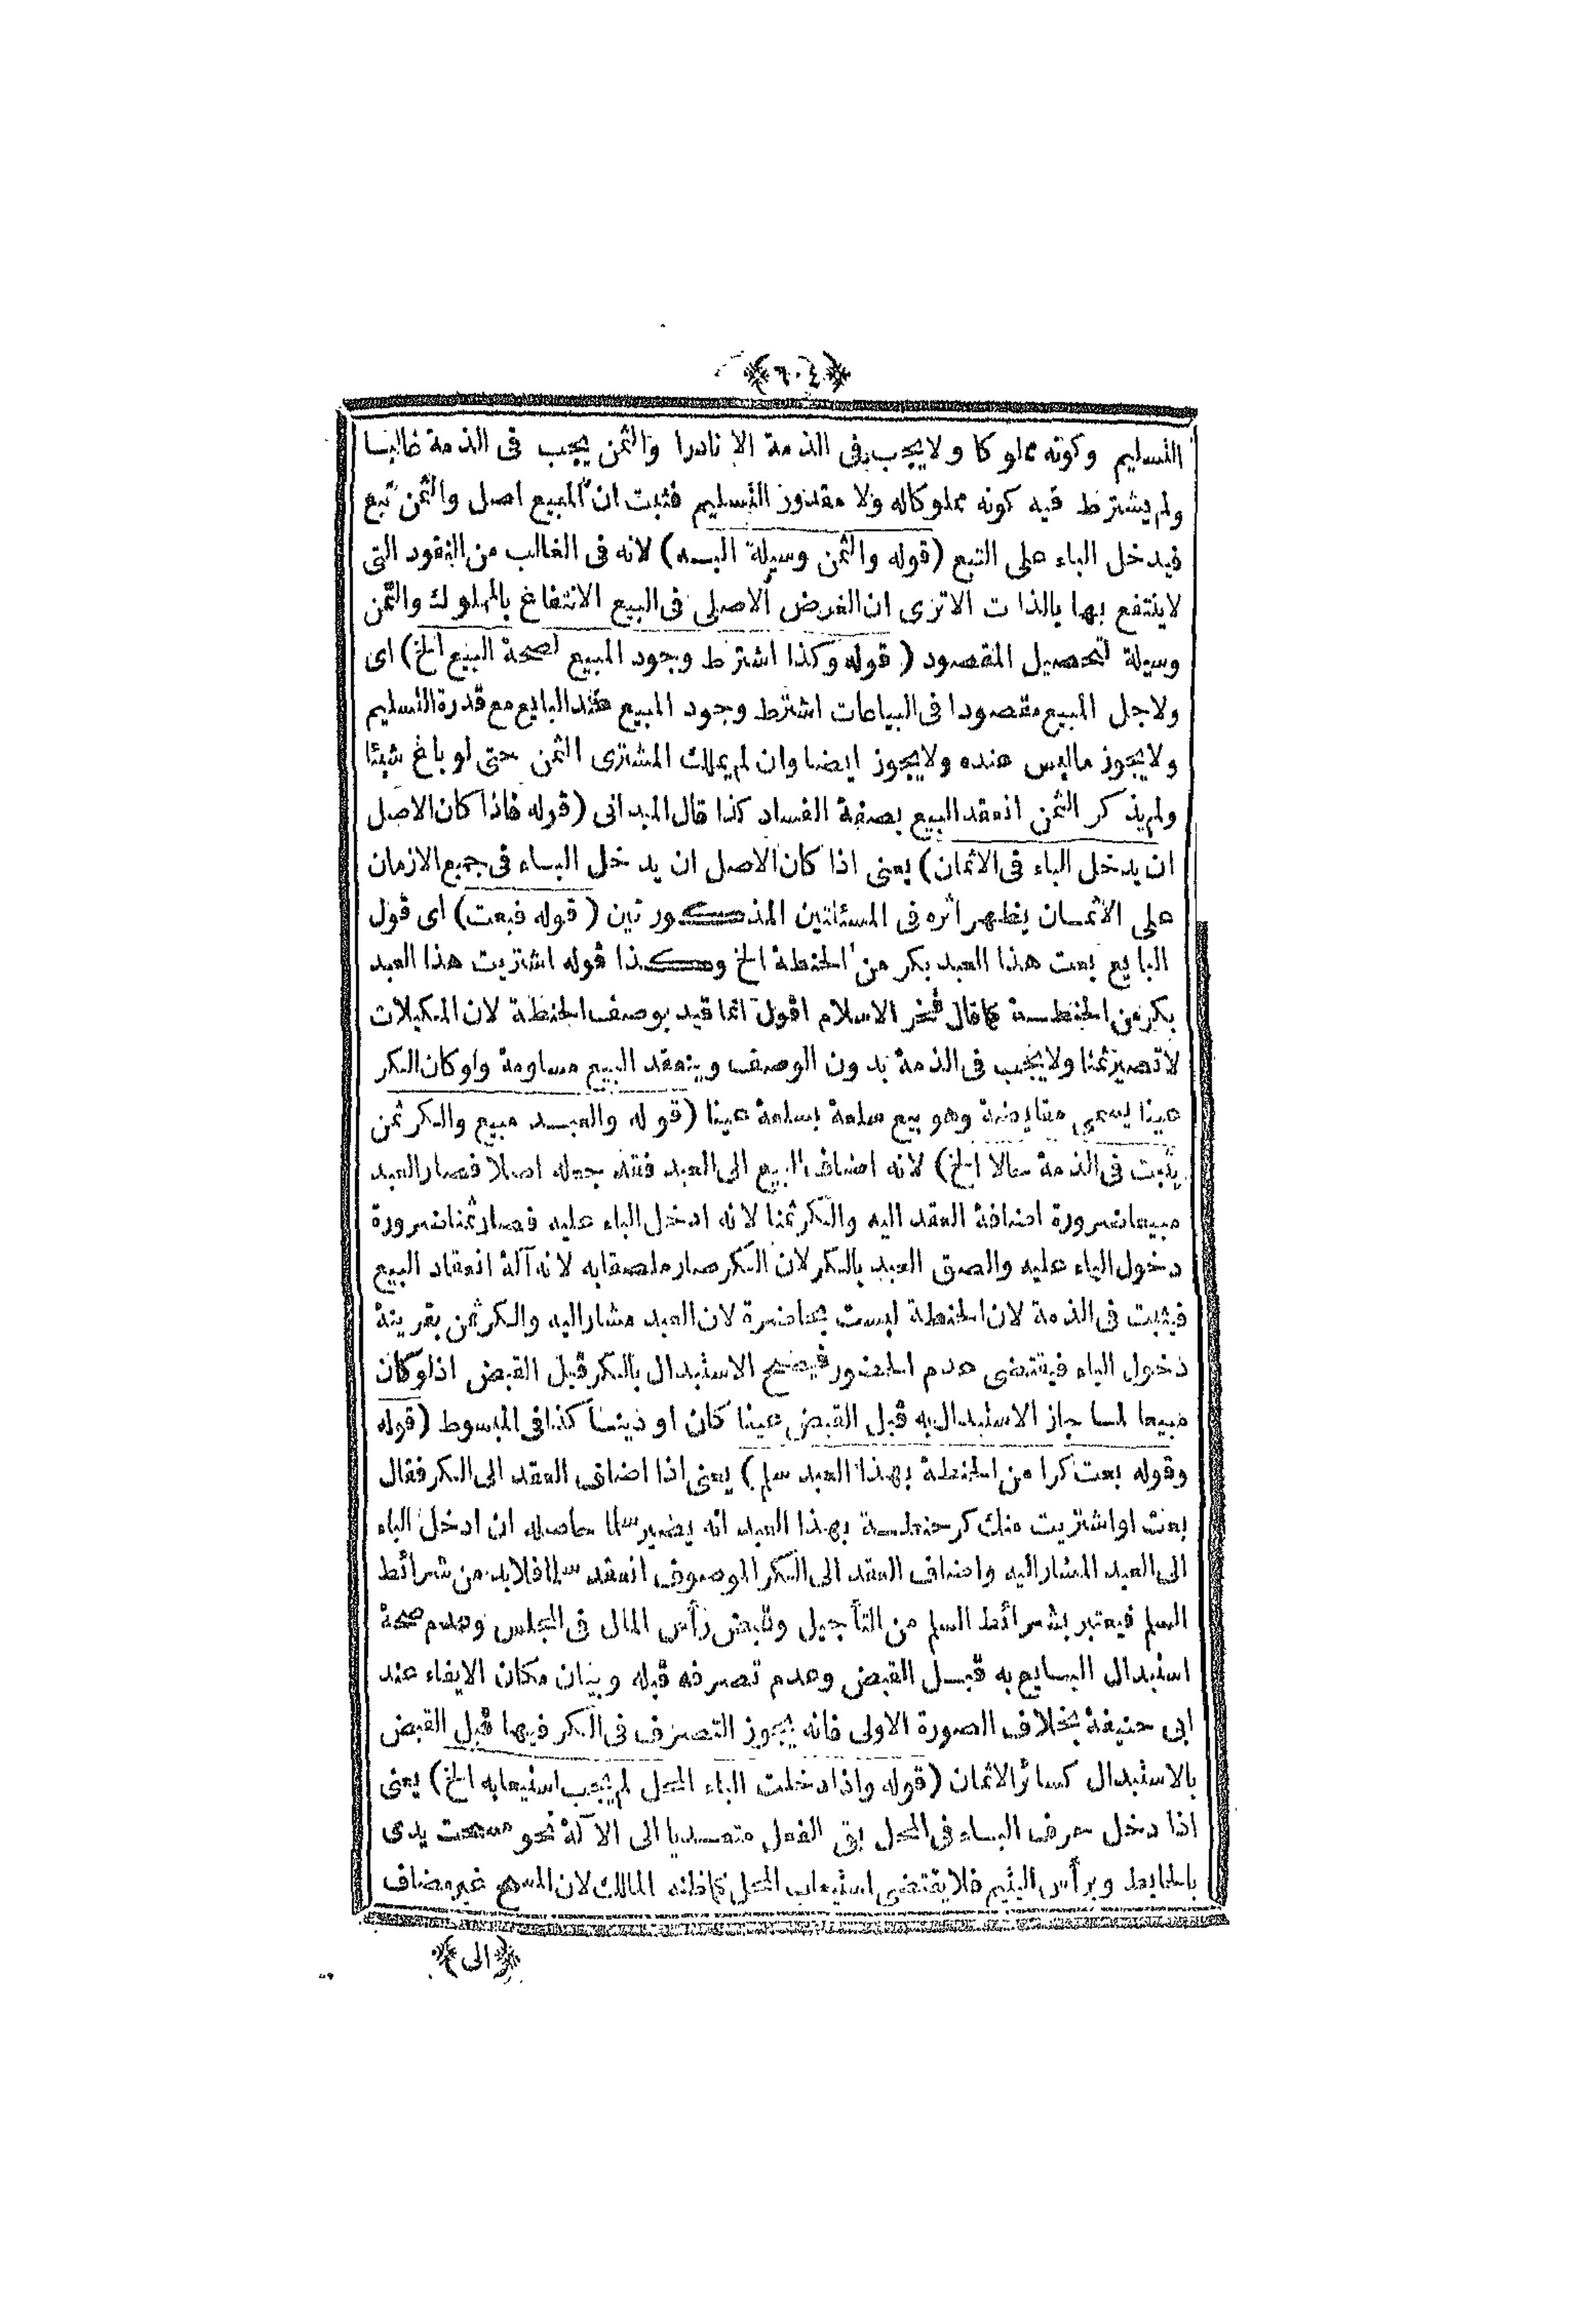 ﴿٦٠٤﴾
التسليم وكونه مملوكا ولا يجب فى الذمة الا نادرا والثمن يجب فى الذمة غالبا
ولم يشترط فيه كونه مملوكاله ولا مقدور التسليم فثبت ان المبيع اصل والثمن تبع
فيدخل الباء على التبع (قوله والثمن وسيلة اليه) لانه فى الغالب من النقود التى
لاينتفع بها بالذات الاترى ان الغرض الاصلى فى البيع الانتفاع بالمملوك والثمن
وسيلة لتحصيل المقصود (قوله وكذا اشترط وجود المبيع لصحة البيع الخ) اى
ولاجل المبيع مقصودا فى البياعات اشترط وجود المبيع عند البايع مع قدرة التسليم
ولايجوز ماليس عنده ولايجوز ايضا وان لم يملك المشترى الثمن حتى لو باع شيئا
ولم يذكر الثمن انعقد البيع بصفة الفساد كذا قال الميدانى (قوله فاذا كان الاصل
ان يدخل الباء فى الاثمان) يعنى اذا كان الاصل ان يدخل البـاء فى جميع الازمان
على الاثمـان يظهر اثره فى المسئلتين المذكورتين (قوله فبعت) اى قول
البايع بعت هذا العبد بكر من الحنطة الخ وكذا قوله اشتريت هذا العبد
بكر من الحنطـة كما قال فخر الاسلام اقول انما قيد بوصف الحنطة لان المكيلات
لاتصير ثمنا ولايجب فى الذمة بدون الوصف وينعقد البيع مساومة ولو كان الكر
عينا يسمى مقايضة وهو بيع سلعة بسلعة عينا (قوله والعبـد مبيع والكر ثمن
يثبت فى الذمة حالا الخ) لانه اضاف البيع الى العبد فقد جعله اصلا فصار العبد
مبيعا ضرورة اضافة العقد اليه والكر ثمنا لانه ادخل الباء عليه فصار ثمنا ضرورة
دخول الباء عليه والصق العبد بالكر لان الكر صار ملصقا به لانه آلة انعقاد البيع
فيثبت فى الذمة لان الحنطة ليست بحاضرة لان العبد مشار اليه والكر ثمن بقرينة
دخول الباء فيقتضى عدم الحضور فيصح الاستبدال بالكر قبل القبض اذ لو كان
مبيعا لمـا جاز الاستبدال به قبل القبض عينا كان او دينـا كذا فى المبسوط (قوله
وقوله بعت كرا من الحنطة بهذا العبد سلم) يعنى اذا اضاف العقد الى الكر فقال
بعت او اشتريت منك كر حنطـة بهذا العبد انه يصير سلما حاصله ان ادخل الباء
الى العبد المشار اليه واضاف العقد الى الكر الموصوف انعقد سلما فلا بد من شرائط
السلم فيعتبر بشرائط السلم من التأجيل وقبض رأس المال فى المجلس وعدم صحة
استبدال البـايع به قبـل القبض وعدم تصرفه قبله وبيان مكان الايفاء عند
ابى حنيفة بخلاف الصورة الاولى فانه يجوز التصرف فى الكر فيها قبل القبض
بالاستبدال كسائر الاثمان (قوله واذا دخلت الباء المحل لم يجب استيعابه الخ) يعنى
اذا دخل حرف البـاء فى المحل بقى الفعل متعـديا الى الآلة نحو مسحت يدى
بالحايط وبرأس اليتيم فلا يقتضى استيعاب المحل كما ظنه المالك لان المسح غير مضاف
﴿الى﴾